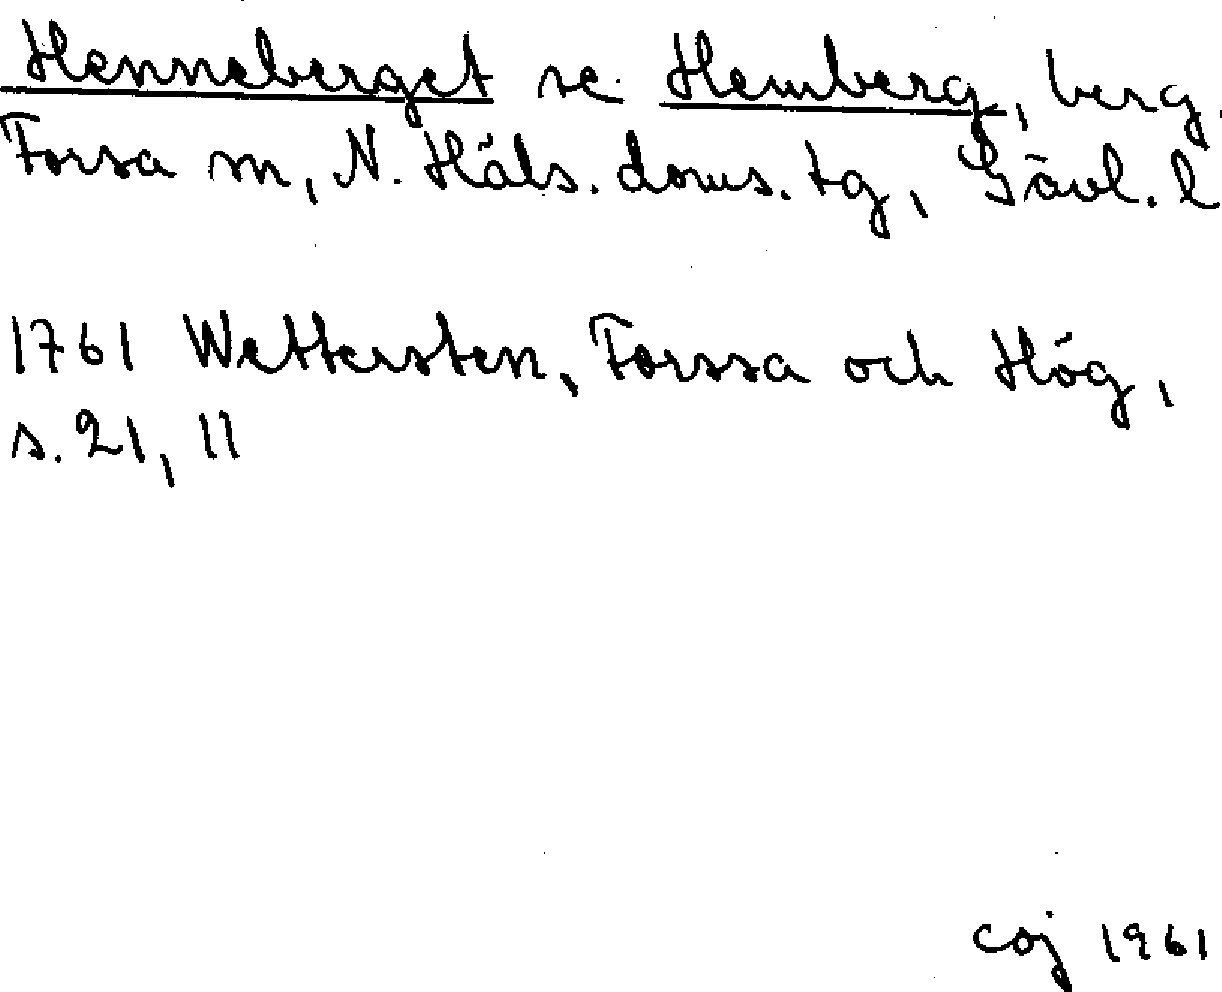 Henneberget se Hemberg, berg.
Forsa sn, N. Häls. doms. tg, Gävl. l
1761 Wettersten, Forssa och Hög,
s. 21, 11
coj 1961